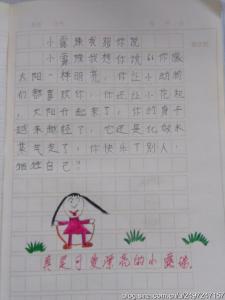 小露珠我想你说
小露珠我想你说"你像
太阳一样明亮，你让小动物
们都喜欢你，你还让小花起
，太阳升起来了，你的身子
越来越轻了，它还是化做水
蒸气走了，你快乐了别人，
牺牲自己"
真是可爱漂亮的小露珠。
blog.sina.com.cn/u/2497247157